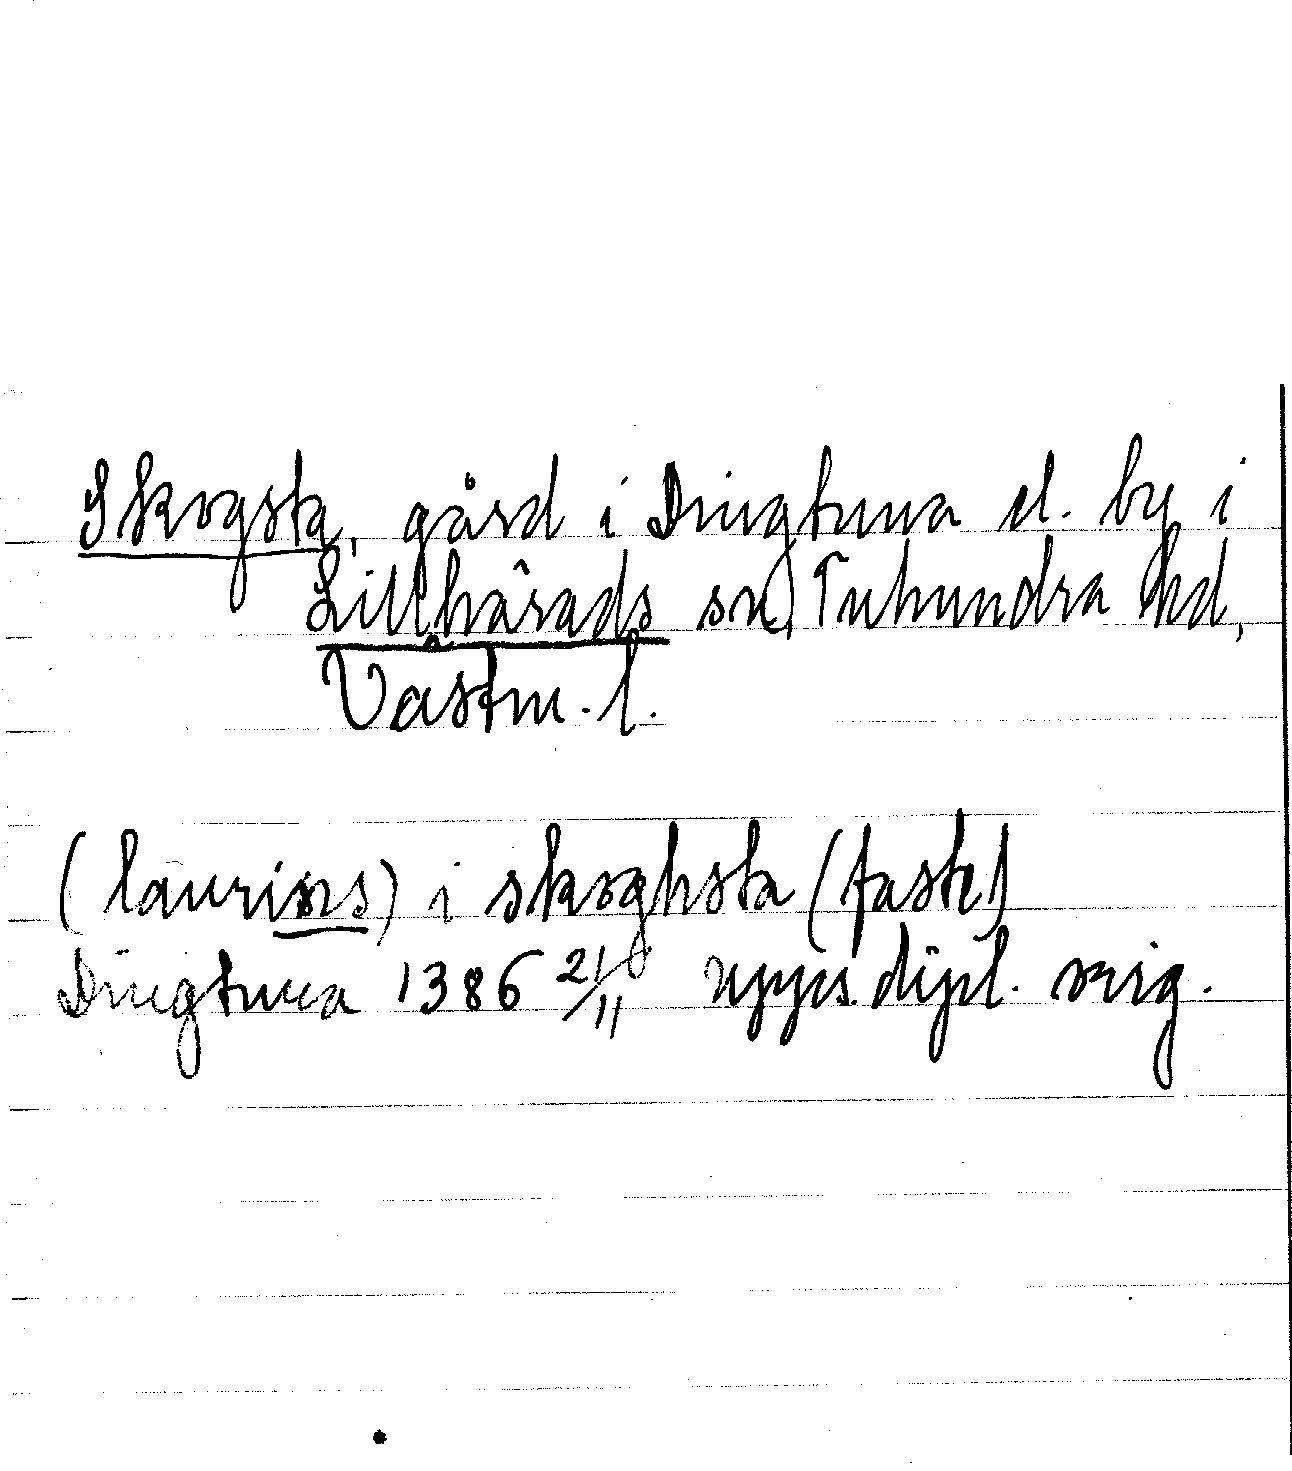 Skogsta, gård i Dingtuna el. by i
Lillhärads sn, Tuhundra hd,
Västm. l.
(laurins) i skoghsta (faste)
Dingtuna 1386 21/11 Upps. dipl. orig.